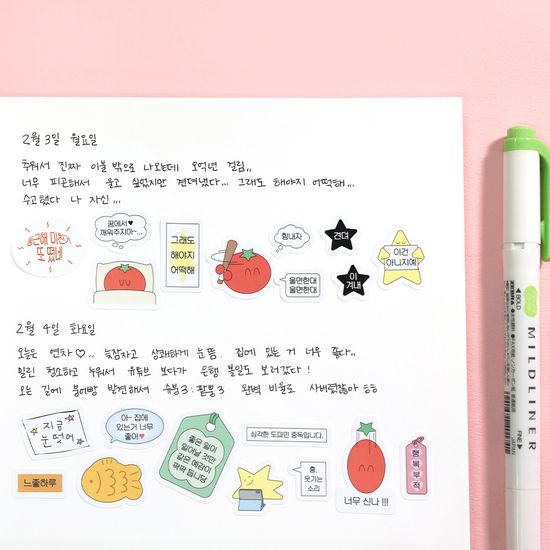 2월 3일 월요일
추워서 진짜 이불 밖으로 나오는데 오억년 걸림,,
너무 피곤해서 울고 싶었지만 견뎌냈다... 그래도 해야지 어떡해...
수고했다 나 자신...
둥근해 미친거
또 떴네
꿈에서♥
깨워주지마~...
그래도
해야지
어떡해
힘내자
울면한대
울면한대
견뎌
이겨내
이건
아니지예
2월 4일 화요일
오늘은 연차♡.. 늦잠자고 상쾌하게 눈뜸. 집에 있는 거 너무 좋다..
밀린 청소하고 누워서 유튜브 보다가 은행 볼일도 보러갔다!
오는 길에 붕어빵 발견해서 슈붕3:팥붕3 완벽 비율로 사버렸잖아 ㅎㅎ
지금
눈떴어
아- 집에
있는거 너무
좋아♥
느좋하루
좋은 일이
일어날 것만
같은 예감이
팍팍 듭니당
심각한 도파민 중독입니다.
흠,
웃기는
소리
너무 신나!!!
행복부적
BOLD
ZEBRA
MILDLINER
FINE
JAPAN